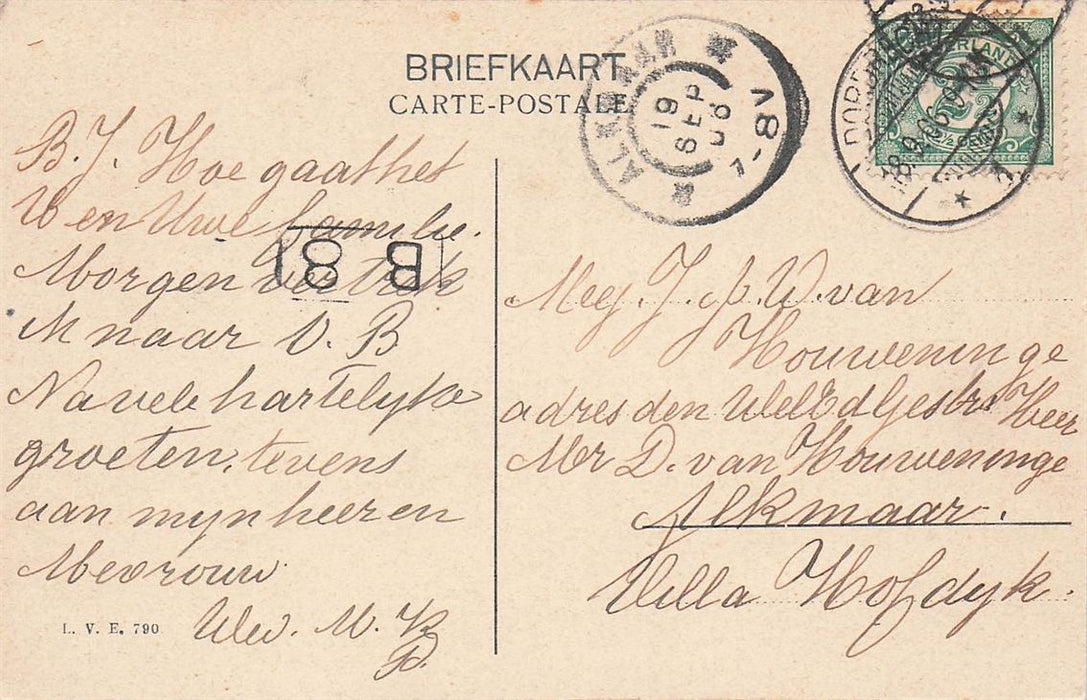 BRIEFKAART
CARTE-POSTALE
ALKMAAR
19 SEP 06
7-8V
DORDRECHT
18.9.06
NEDERLAND
B 8
B. J. Hoe gaat het
U en Uwe familie.
Morgen vertrek
M naar D. B
Na vele hartelyke
groeten, tevens
aan mynheer en
Mevrouw
Wed. M. K
P.
L. V. E. 790
Mej. J. A. W. van
Houweninge
adres den WelEdGestr Heer
Mr D. van Houweninge
Alkmaar.
Villa Hofdyk.